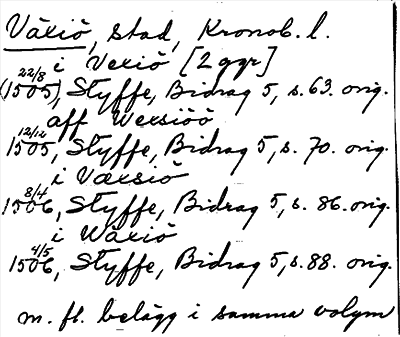 Växiö, stad, Kronob. l.
i Vexiö [2 ggr]
(1505 22/8), Styffe, Bidrag 5, s. 63. orig.
aff Wexsiöö
1505 12/12, Styffe, Bidrag 5, s. 70. orig.
i Væxsiö
1506 8/4, Styffe, Bidrag 5, s. 86. orig.
i Wäxiö
1506 4/5, Styffe, Bidrag 5, s. 88. orig.
m. fl. belägg i samma volym